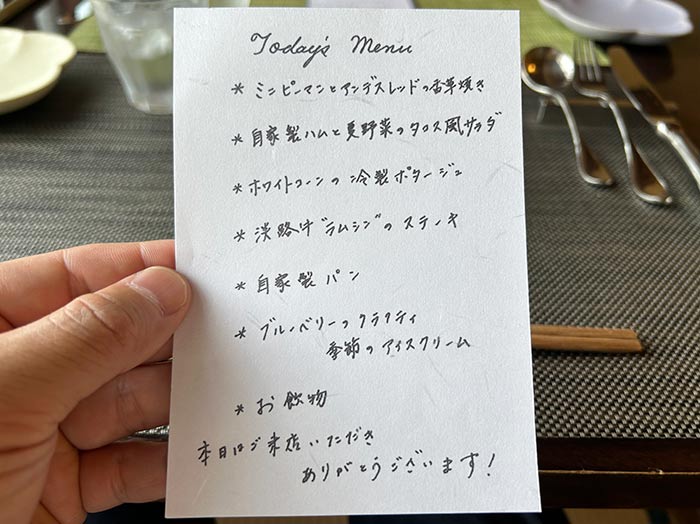 Today's Menu
* ミニピーマンとアンデスレッドの香草焼き
* 自家製ハムと夏野菜のタコス風サラダ
* ホワイトコーンの冷製ポタージュ
* 淡路牛"ラムシン"のステーキ
* 自家製パン
* ブルーベリーのクラフティ
季節のアイスクリーム
* お飲物
本日はご来店いただき
ありがとうございます!